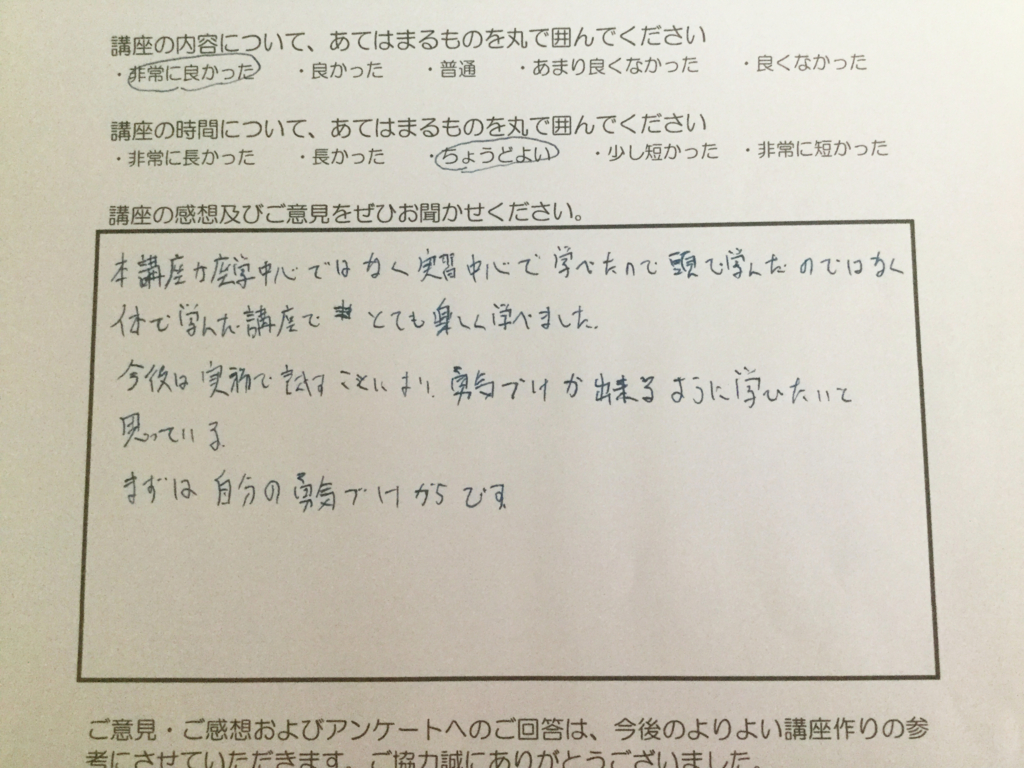 講座の内容について、あてはまるものを丸で囲んでください
・非常に良かった ・良かった ・普通 ・あまり良くなかった ・良くなかった
講座の時間について、あてはまるものを丸で囲んでください
・非常に長かった ・長かった ・ちょうどよい ・少し短かった ・非常に短かった
講座の感想及びご意見をぜひお聞かせください。
本講座が座学中心ではなく実習中心で学べたので頭で学んだのではなく
体で学んだ講座で とても楽しく学べました。
今後は実務で試すことにより、勇気づけが出来るように学びたいと
思っている。
まずは自分の勇気づけからです
ご意見・ご感想およびアンケートへのご回答は、今後のよりよい講座作りの参
考にさせていただきます。ご協力誠にありがとうございました。